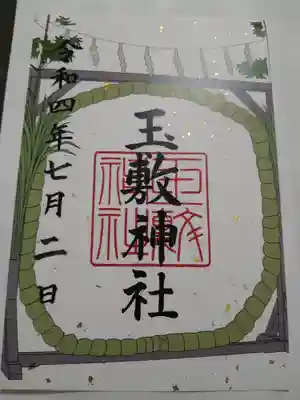 玉敷神社
令和四年七月二日
玉敷神社